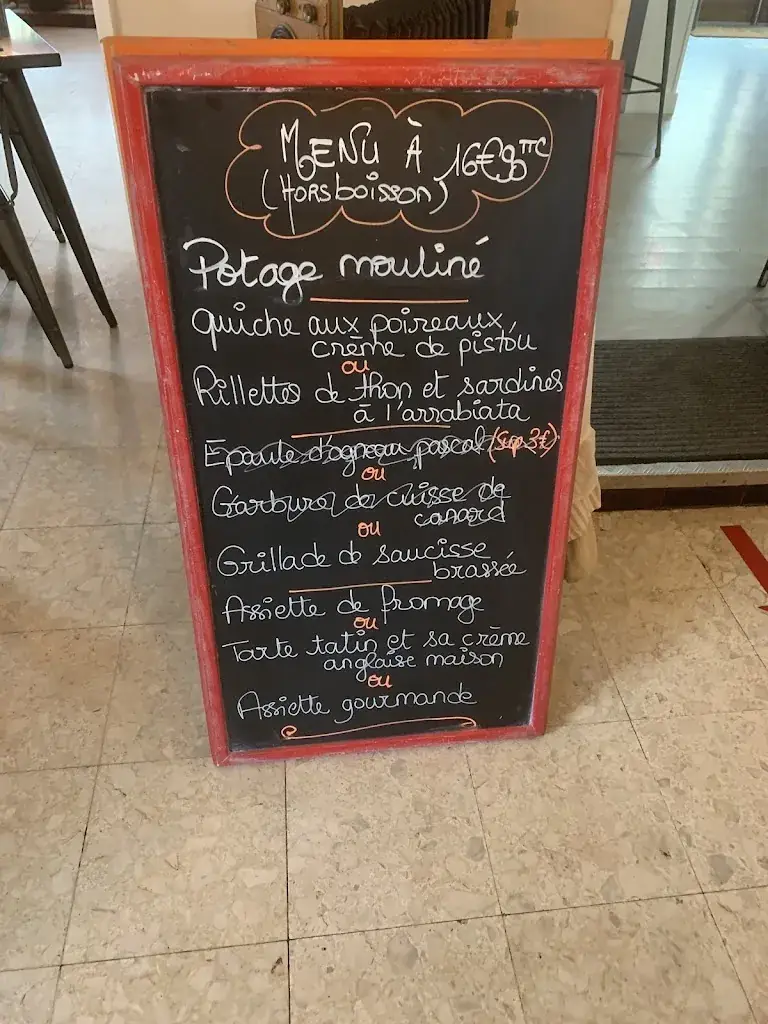 MENU À 16€90 TTC
(HORS boisson)
Potage mouliné
Quiche aux poireaux,
crème de pistou
ou
Rillettes de thon et sardines
à l'arrabiata
Epaule d'agneau pascal (Sup 3€)
ou
Garbure de cuisse de
canard
ou
Grillade de saucisse
brassée
Assiette de fromage
ou
Tarte tatin et sa crème
anglaise maison
ou
Assiette gourmande